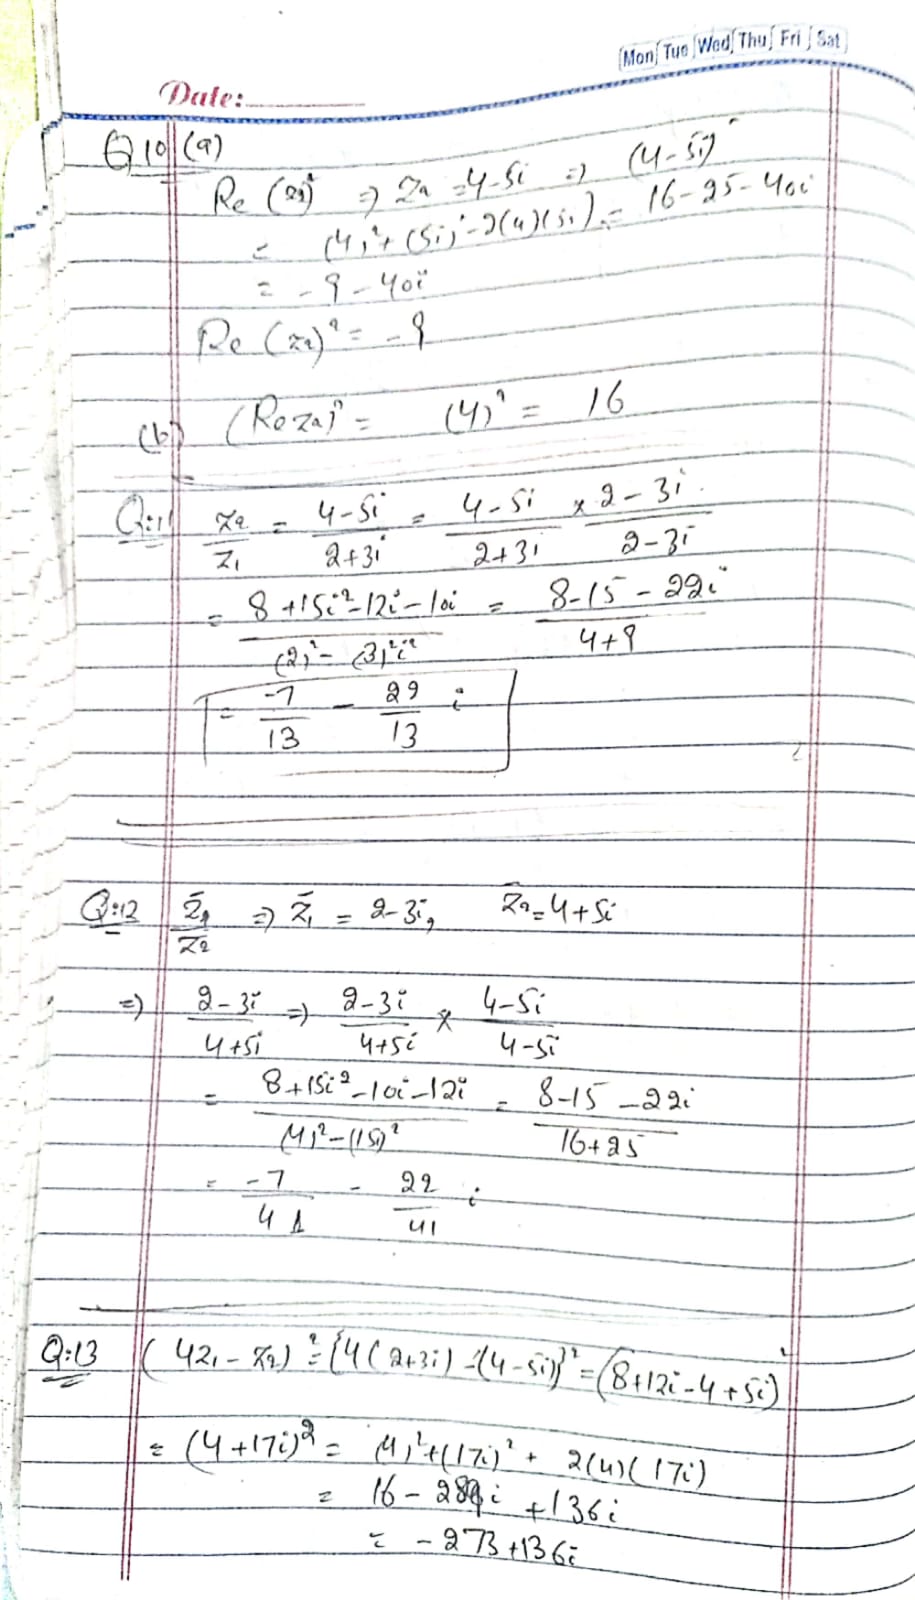 Mon Tue Wed Thu Fri Sat
Date:
Q 10 (a)
Re (z2)² ⇒ z2 = 4-5i ⇒ (4-5i)²
= (4)²+(5i)²-2(4)(5i) = 16-25-40i
= -9-40i
Re (z2)² = -9
(b) (Re z2)² = (4)² = 16
Q:11 z2/z1 = (4-5i)/(2+3i) = (4-5i)/(2+3i) × (2-3i)/(2-3i)
= (8+15i²-12i-10i)/((2)²-(3)²i²) = (8-15-22i)/(4+9)
= -7/13 - 29/13 i
Q:12 z̄1/z̄2 ⇒ z̄1 = 2-3i, z̄2 = 4+5i
⇒) (2-3i)/(4+5i) ⇒ (2-3i)/(4+5i) × (4-5i)/(4-5i)
= (8+15i²-10i-12i)/((4)²-(5i)²) = (8-15-22i)/(16+25)
= -7/41 - 22/41 i
Q:13 (4z1-z2)² = {4(2+3i)-(4-5i)}² = (8+12i-4+5i)²
= (4+17i)² = (4)²+(17i)² + 2(4)(17i)
= 16-289i+136i
= -273+136i